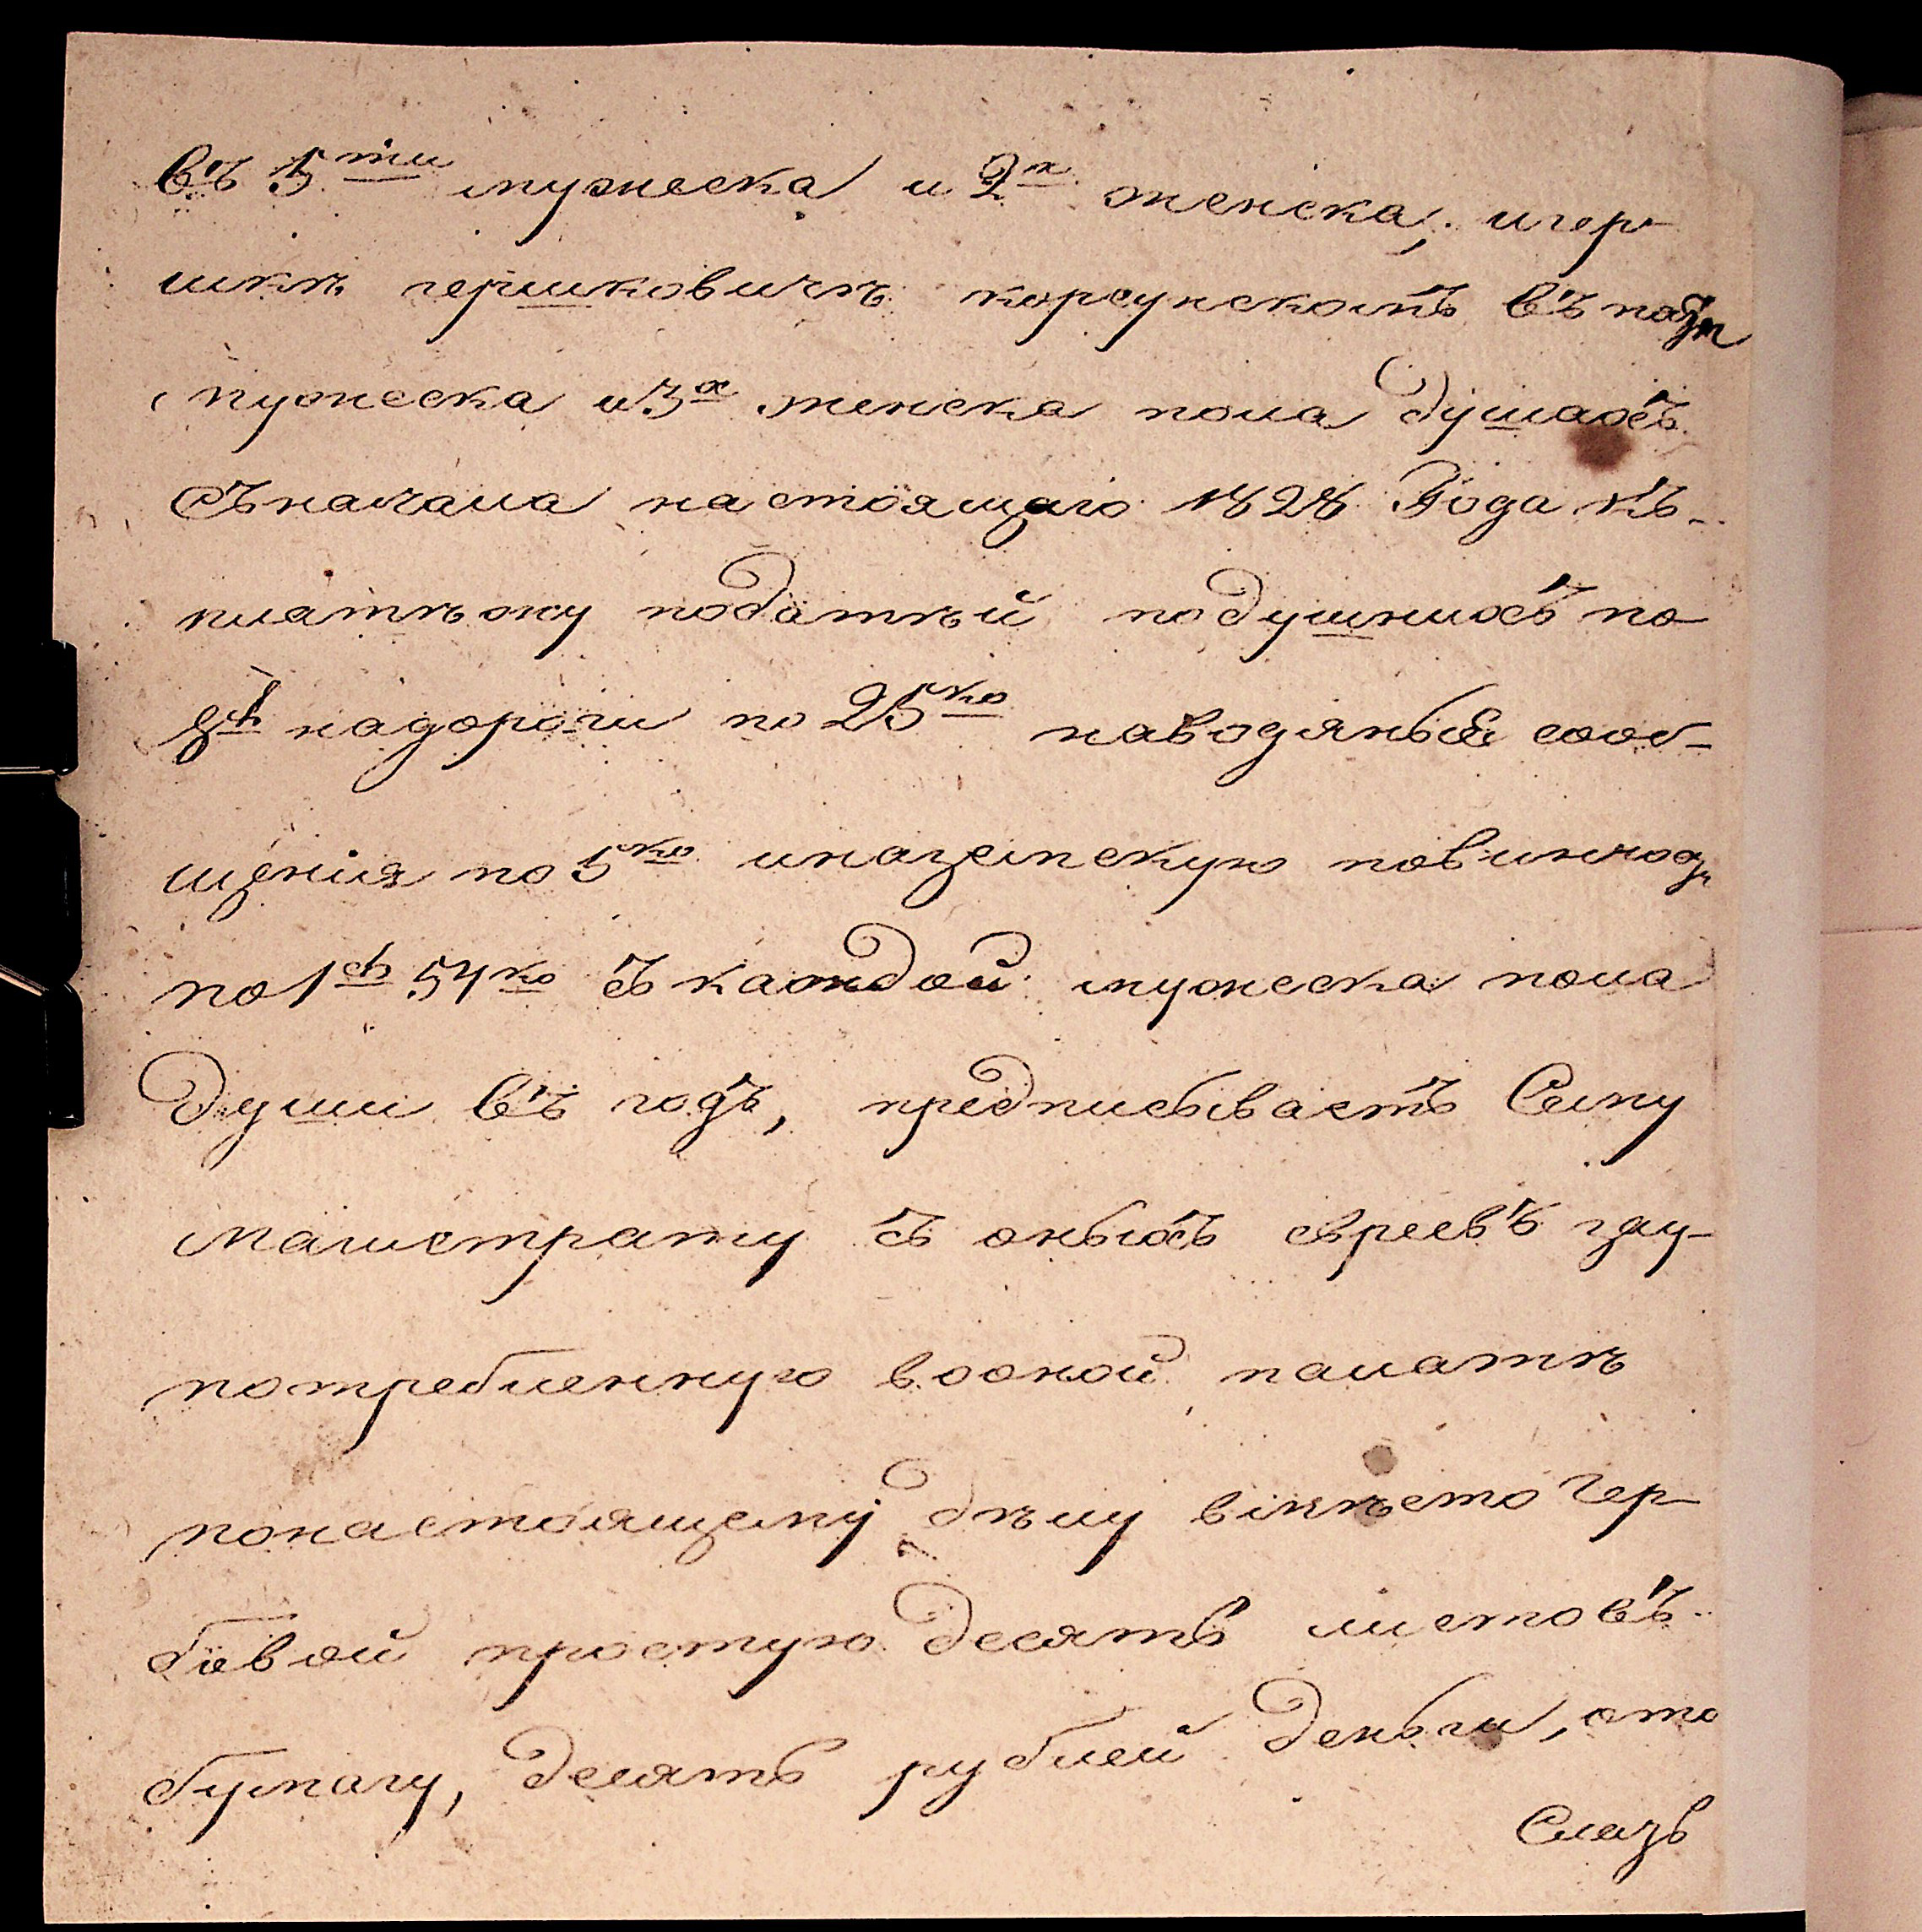 въ 5ти мужеска и 2х женска, игер-
шкѣ гершковичѣ корсунскомъ въ
мужеска и 3х женска пола душахъ
съначала настоящаго 1828 Года къ
платѣжу податѣй подушныхъ по
надороги по 25ко наводяныя сооб-
щенія по 5ко иназемскую повинно
по 1 54ко съ каждой мужеска пола
души въ годъ, предписываетъ Сему
магистрату съ оныхъ евреевъ зау-
потребленную воокой палатѣ
понастоящему дѣлу вмѣсто гер-
бовой простую десять листовъ
бумагу, десять рублей деньги, ото
Слазь